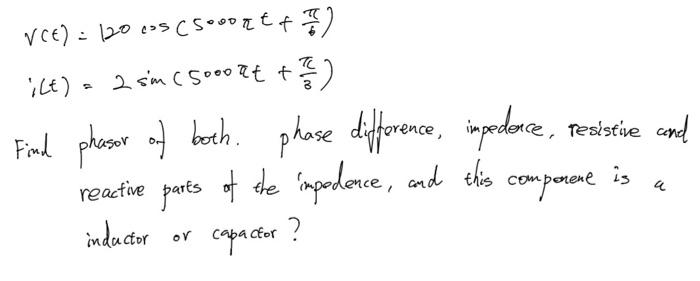 V(t) = 120 cos(5000πt + π/6)
i(t) = 2 sin(5000πt + π/3)
Find phasor of both. phase difference, impedence, resistive and
reactive parts of the impedence, and this componene is a
inductor or capactor?